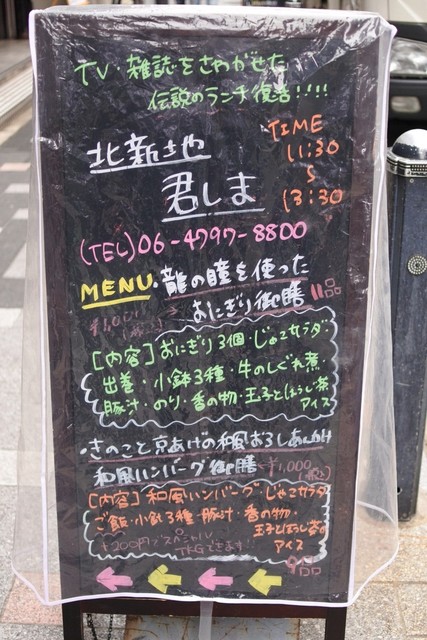 TV・雑誌をさわがせた
伝説のランチ復活!!!!
TIME
11:30
〜
13:30
北新地
君しま
(TEL)06-4797-8800
MENU・龍の瞳を使った
おにぎり御膳 11品
[内容]おにぎり3個・じゃこサラダ・
出巻・小鉢3種・牛のしぐれ煮・
豚汁・のり・香の物・玉子とほうじ茶
アイス
・きのこと京あげの和風おろしあんかけ
和風ハンバーグ御膳 ¥1,000(税込)
[内容]和風ハンバーグ・じゃこサラダ
ご飯・小鉢3種・豚汁・香の物・
玉子とほうじ茶の
アイス
+200円でスペシャル
TKGできます! 9品